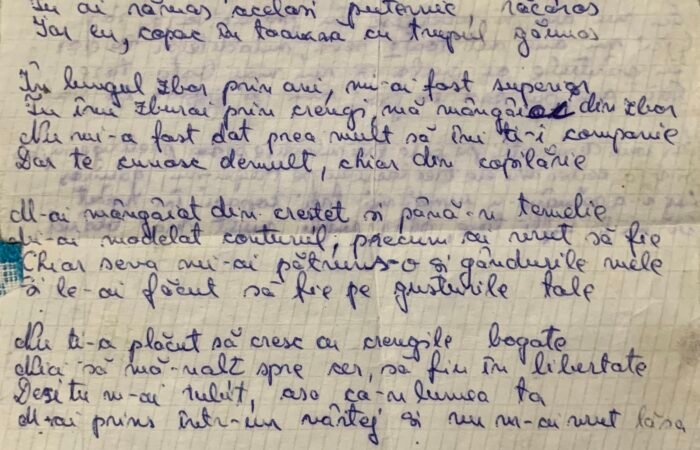 Tu ai rămas același puternic, răcoros
Iar eu, copac în toamna cu trupul găunos
În lungul zbor prin ani, mi-ai fost superior
Tu îmi zburai prin crengi, mă mângâi din zbor
Nu mi-a fost dat prea mult să îmi ti-i companie
Dar te cunosc demult, chiar din copilărie
M-ai mângâiat din creștet si până-n temelie
Mi-ai modelat conturul, precum ai vrut să fie
Chiar seva mi-ai pătruns-o și gândurile mele
Și le-ai făcut să fie pe gusturile tale
Nu ti-a plăcut să cresc cu crengile bogate
Nici să mă-nalt spre cer, să fiu în libertate
Desi tu m-ai iubit, asa ca-n lumea ta
M-ai prins într-un vârtej și nu m-ai vrut lăsa